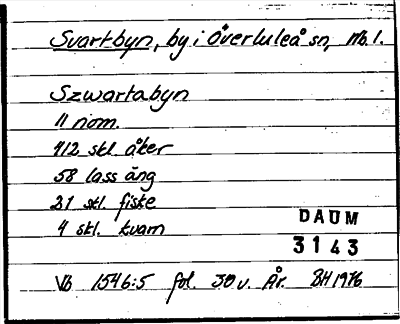 Svartbyn, by i Överluleå sn, Nb.l.
Szwartabyn
11 nom.
112 skl åker
58 lass äng
21 skl. fiske
4 skl. kvarn
DAUM
3143
VB 1546:5 fol. 30 v. År. BH 1976